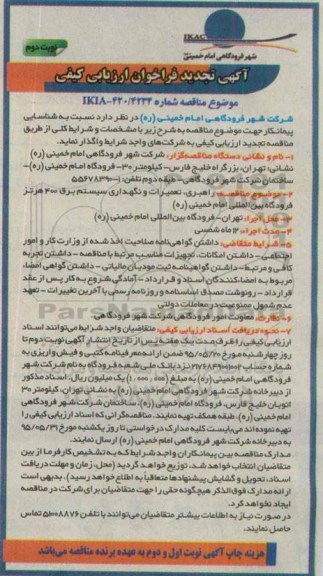 IKAC
شهر فرودگاهی امام خمینی (ره)
نوبت دوم
آگهی تجدید فراخوان ارزیابی کیفی
موضوع مناقصه شماره IKIA-۴۲۰/۴۲۳۴
شرکت شهر فرودگاهی امام خمینی (ره) در نظر دارد نسبت به شناسایی
پیمانکار جهت موضوع مناقصه به شرح زیر با مشخصات و شرایط کلی از طریق
مناقصه تجدید ارزیابی کیفی به شرکت‌های واجد شرایط واگذار نماید.
۱- نام و نشانی دستگاه مناقصه‌گزار: شرکت شهر فرودگاهی امام خمینی (ره)
نشانی: تهران، بزرگراه خلیج فارس- کیلومتر ۳۰- فرودگاه امام خمینی (ره)-
ساختمان شرکت شهر فرودگاهی- طبقه دوم تلفن: ۱-۵۵۶۷۸۳۹۰
۲- موضوع مناقصه: راهبری، تعمیرات و نگهداری سیستم برق ۴۰۰ هرتز
فرودگاه بین المللی امام خمینی (ره)
۳- محل اجرا: تهران- فرودگاه بین المللی امام خمینی (ره)
۴- مدت اجرا: ۱۲ ماه شمسی
۵- شرایط متقاضی: داشتن گواهی‌نامه صلاحیت اخذ شده از وزارت کار و امور
اجتماعی- داشتن امکانات، تجهیزات مناسب مرتبط با مناقصه- داشتن تجربه
کافی و مرتبط- داشتن گواهینامه ثبت مودیان مالیاتی- داشتن گواهی امضاء
مربوط به امضاءکنندگان اسناد و قرارداد- آمادگی شروع به کار پس از عقد
قرارداد- رونوشت مصدق اساسنامه و روزنامه رسمی با آخرین تغییرات- تعهد
عدم شمول ممنوعیت در معاملات دولتی
۶- نظارت: معاونت امور فرودگاهی شرکت شهر فرودگاهی
۷- نحوه دریافت اسناد ارزیابی کیفی: متقاضیان واجد شرایط می‌توانند اسناد
ارزیابی کیفی را ظرف مدت یک هفته پس از تاریخ انتشار آگهی نوبت دوم تا
روز چهارشنبه مورخ ۹۵/۰۵/۲۰ ضمن ارائه معرفینامه کتبی و فیش واریزی به
شماره حساب نزد بانک ملی شعبه فرودگاه به نام شرکت شهر
فرودگاهی امام خمینی (ره) به مبلغ (۱,۰۰۰,۰۰۰) یک میلیون ریال، اسناد مذکور
از دبیرخانه شرکت شهر فرودگاهی امام خمینی (ره) به نشانی تهران، کیلومتر ۳۰
اتوبان خلیج فارس، فرودگاه امام خمینی (ره)، ساختمان شرکت شهر فرودگاهی
امام خمینی (ره)، طبقه همکف تهیه نمایند. مناقصه‌گرانی که اسناد ارزیابی کیفی را
تهیه نموده اند می‌بایست کلیه مدارک درخواستی تا روز یکشنبه مورخ ۹۵/۰۵/۳۱
به دبیرخانه شرکت شهر فرودگاهی امام خمینی (ره) ارسال نمایند.
مدارک مناقصه بین پیمانکاران واجد شرایط که به تشخیص کارفرما از بین
متقاضیان انتخاب خواهد شد، توزیع خواهد گردید (محل، زمان و مهلت دریافت
اسناد، تحویل و گشایش پیشنهادها متعاقباً به اطلاع خواهد رسید). بدیهی است
ارائه مدارک فوق الذکر هیچگونه حقی را جهت متقاضیان برای شرکت در مناقصه
ایجاد نخواهد کرد.
در صورت نیاز به اطلاعات بیشتر متقاضیان می‌توانند با تلفن ۵۱۰۰۸۸۷۶ تماس
حاصل نمایند.
هزینه چاپ آگهی نوبت اول و دوم به عهده برنده مناقصه می‌باشد